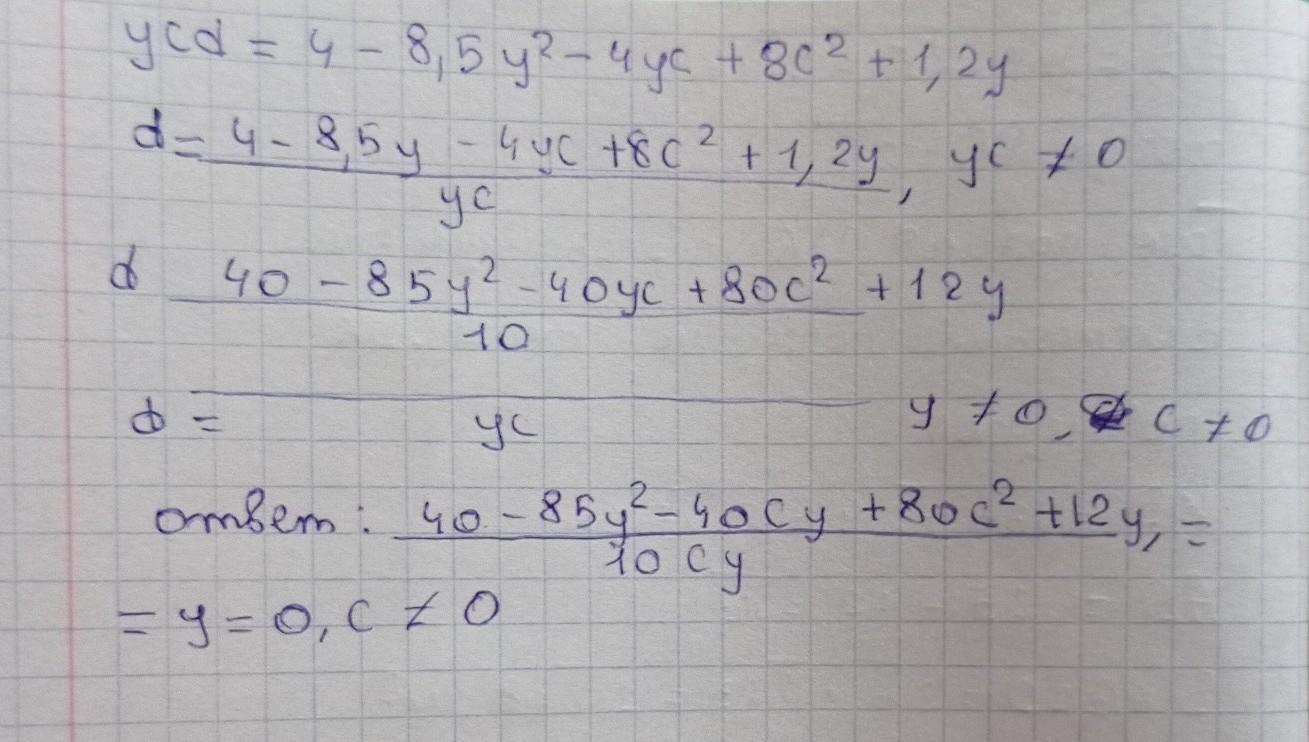 ycd = 4 - 8,5y² - 4yc + 8c² + 1,2y
d = 4 - 8,5y - 4yc + 8c² + 1,2y, yc ≠ 0
yc
d 40 - 85y² - 40yc + 80c² + 12y
10
d = yc y ≠ 0, c ≠ 0
ответ: 40 - 85y² - 40cy + 80c² + 12y, =
10cy
= y = 0, c ≠ 0